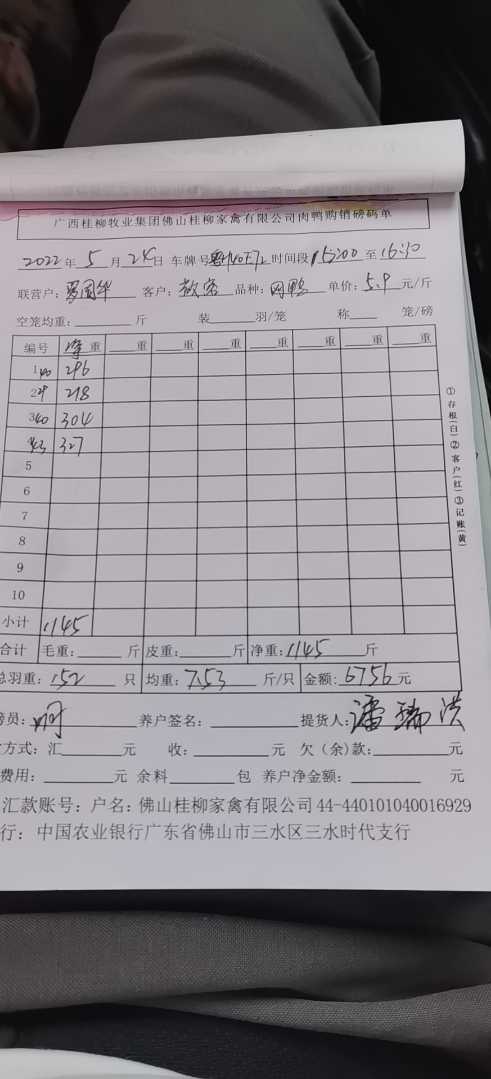 广西桂柳牧业集团佛山桂柳家禽有限公司肉鸭购销磅码单
2022年 5 月 24 日 车牌号 时间段 15:00 至 16:10
联营户: 客户: 散客 品种: 单价: 5.9 元/斤
空笼均重: 斤 装 羽/笼 称 笼/磅
编号 净重 重 重 重 重 重 重 重
1 40 296
2 29 218
3 40 304
4 43 327
5
6
7
8
9
10
小计 1145
合计 毛重: 斤 皮重: 斤 净重: 1145 斤
总羽重: 152 只 均重: 7.53 斤/只 金额: 6756 元
磅员: 养户签名: 提货人: 潘瑞洪
方式: 汇 元 收: 元 欠(余)款: 元
费用: 元 余料 包 养户净金额: 元
汇款账号: 户名: 佛山桂柳家禽有限公司 44-440101040016929
行: 中国农业银行广东省佛山市三水区三水时代支行
①存根(白)②客户(红)③记账(黄)